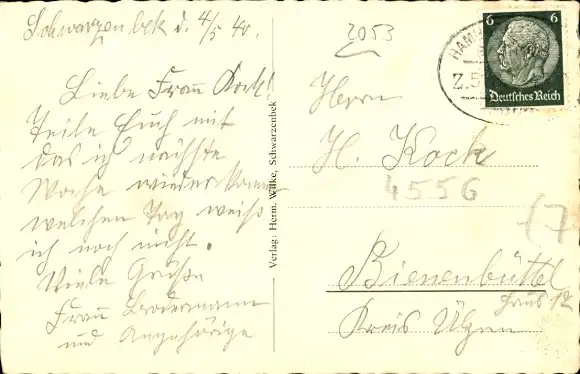 Schwarzenbek d. 4/5 40.
Liebe Frau Kock!
Teile Euch mit
das ich nächste
Woche wieder komme
welchen Tag weiß
ich noch nicht.
Viele Grüße
Frau
und Angehörige
Verlag: Herm. Wilke, Schwarzenbek
2053
HAM
Z.5
6 6
Deutsches Reich
Herrn
H. Kock
4556
(7
Bienenbüttel
Haus 12
Kreis Ülzen